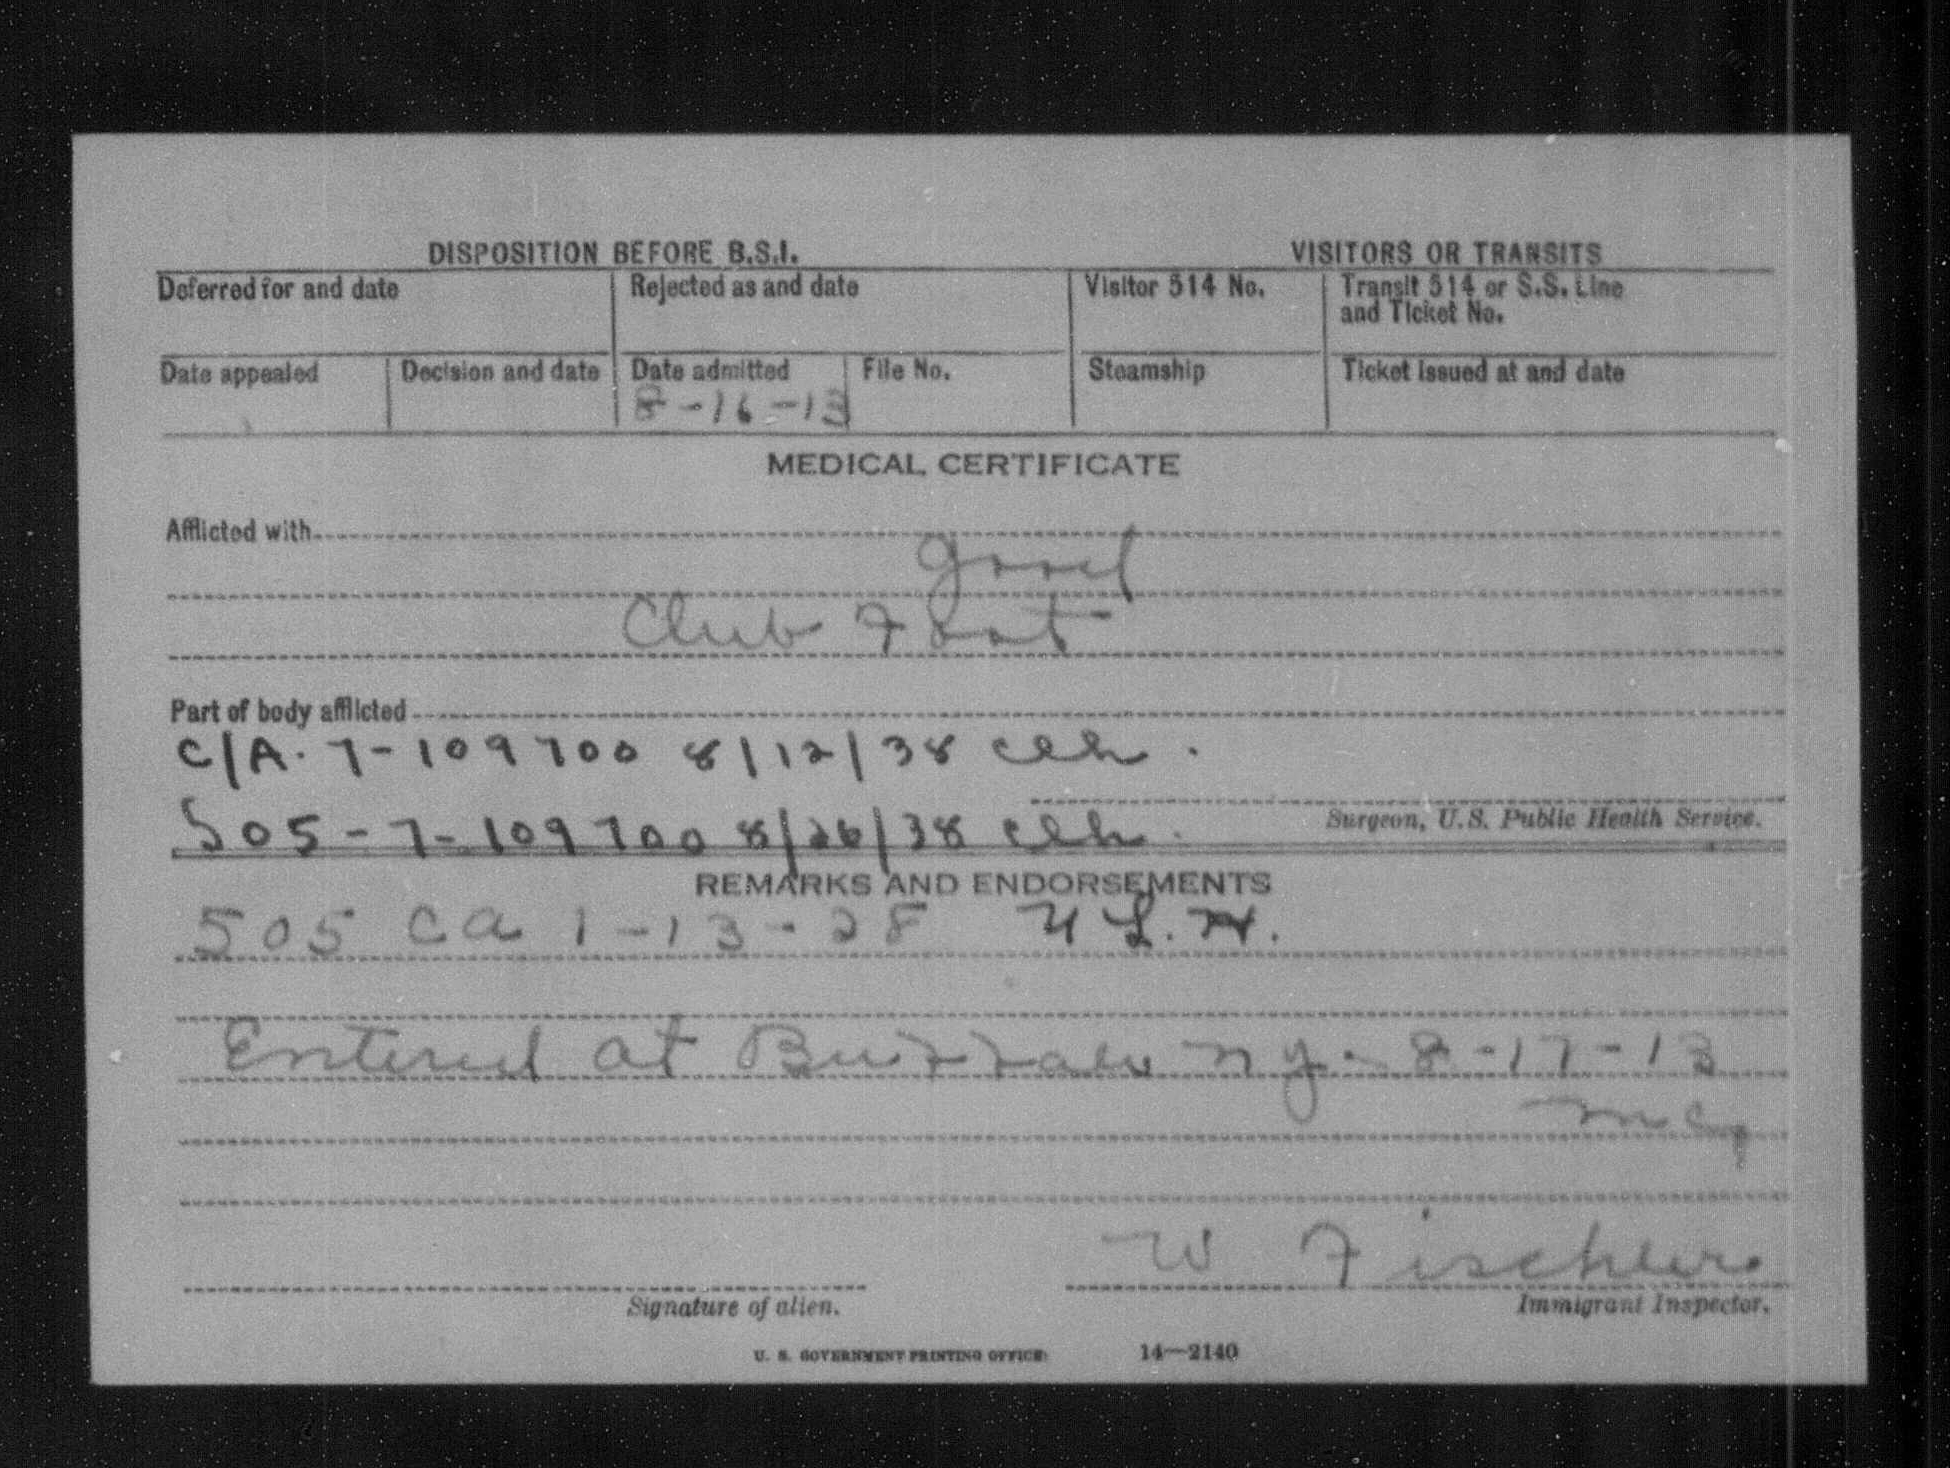 DISPOSITION BEFORE B.S.I. VISITORS OR TRANSITS
Deferred for and date Rejected as and date Visitor 514 No. Transit 514 or S.S. Line
and Ticket No.
Date appealed Decision and date Date admitted File No. Steamship Ticket issued at and date
8-16-13
MEDICAL CERTIFICATE
Afflicted with
good
Club Foot
Part of body afflicted
C/A. 7-109700 8/12/38 clh.
505-7-109700 8/26/38 clh.
Surgeon, U.S. Public Health Service.
REMARKS AND ENDORSEMENTS
505 ca 1-13-28 L.
Entered at Buffalo ny. 8-17-13
W Fischler
Signature of alien. Immigrant Inspector.
U. S. GOVERNMENT PRINTING OFFICE 14—2140